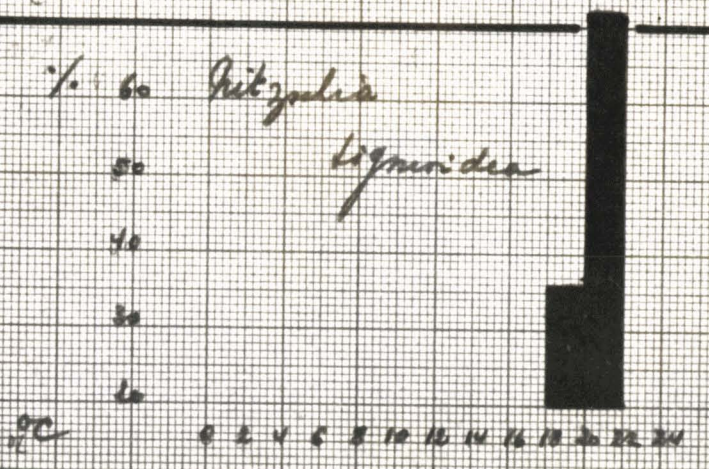 % 60 Nitzschia
50 sigmoidea
40
30
20
°C 0 2 4 6 8 10 12 14 16 18 20 22 24